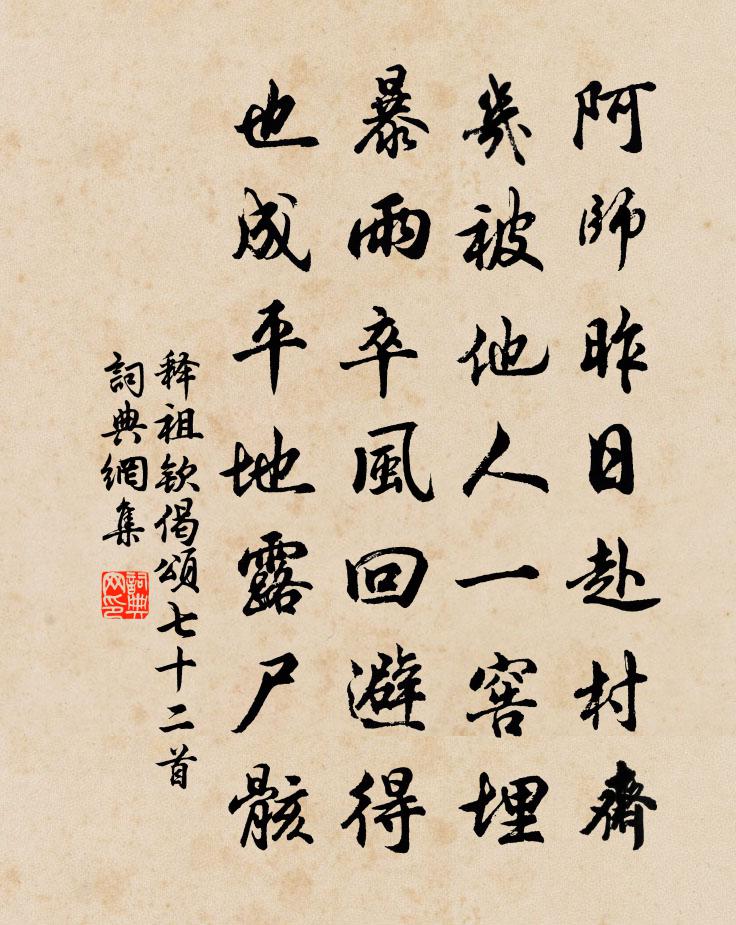 阿師昨日赴村齋
幾被他人一窖埋
暴雨卒風回避得
也成平地露尸骸
释祖欽偈頌七十二首
詞典網集
詞典网印